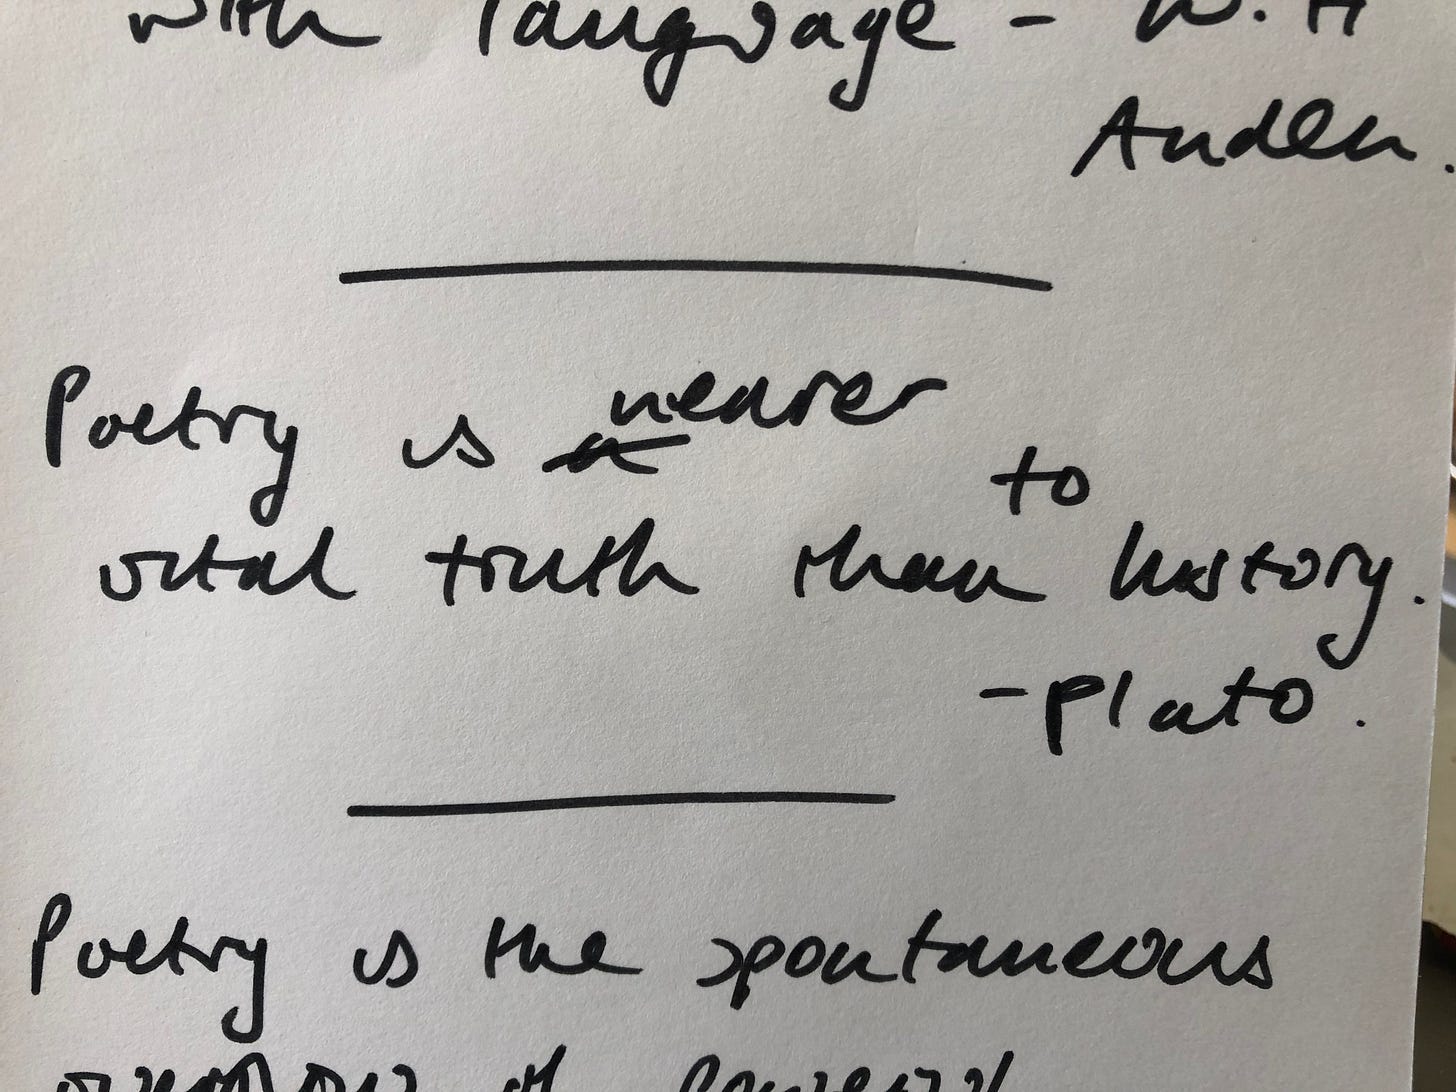 with language - W. H
Auden.
Poetry is nearer to
vital truth than history.
- Plato.
Poetry is the spontaneous
overflow of powerful